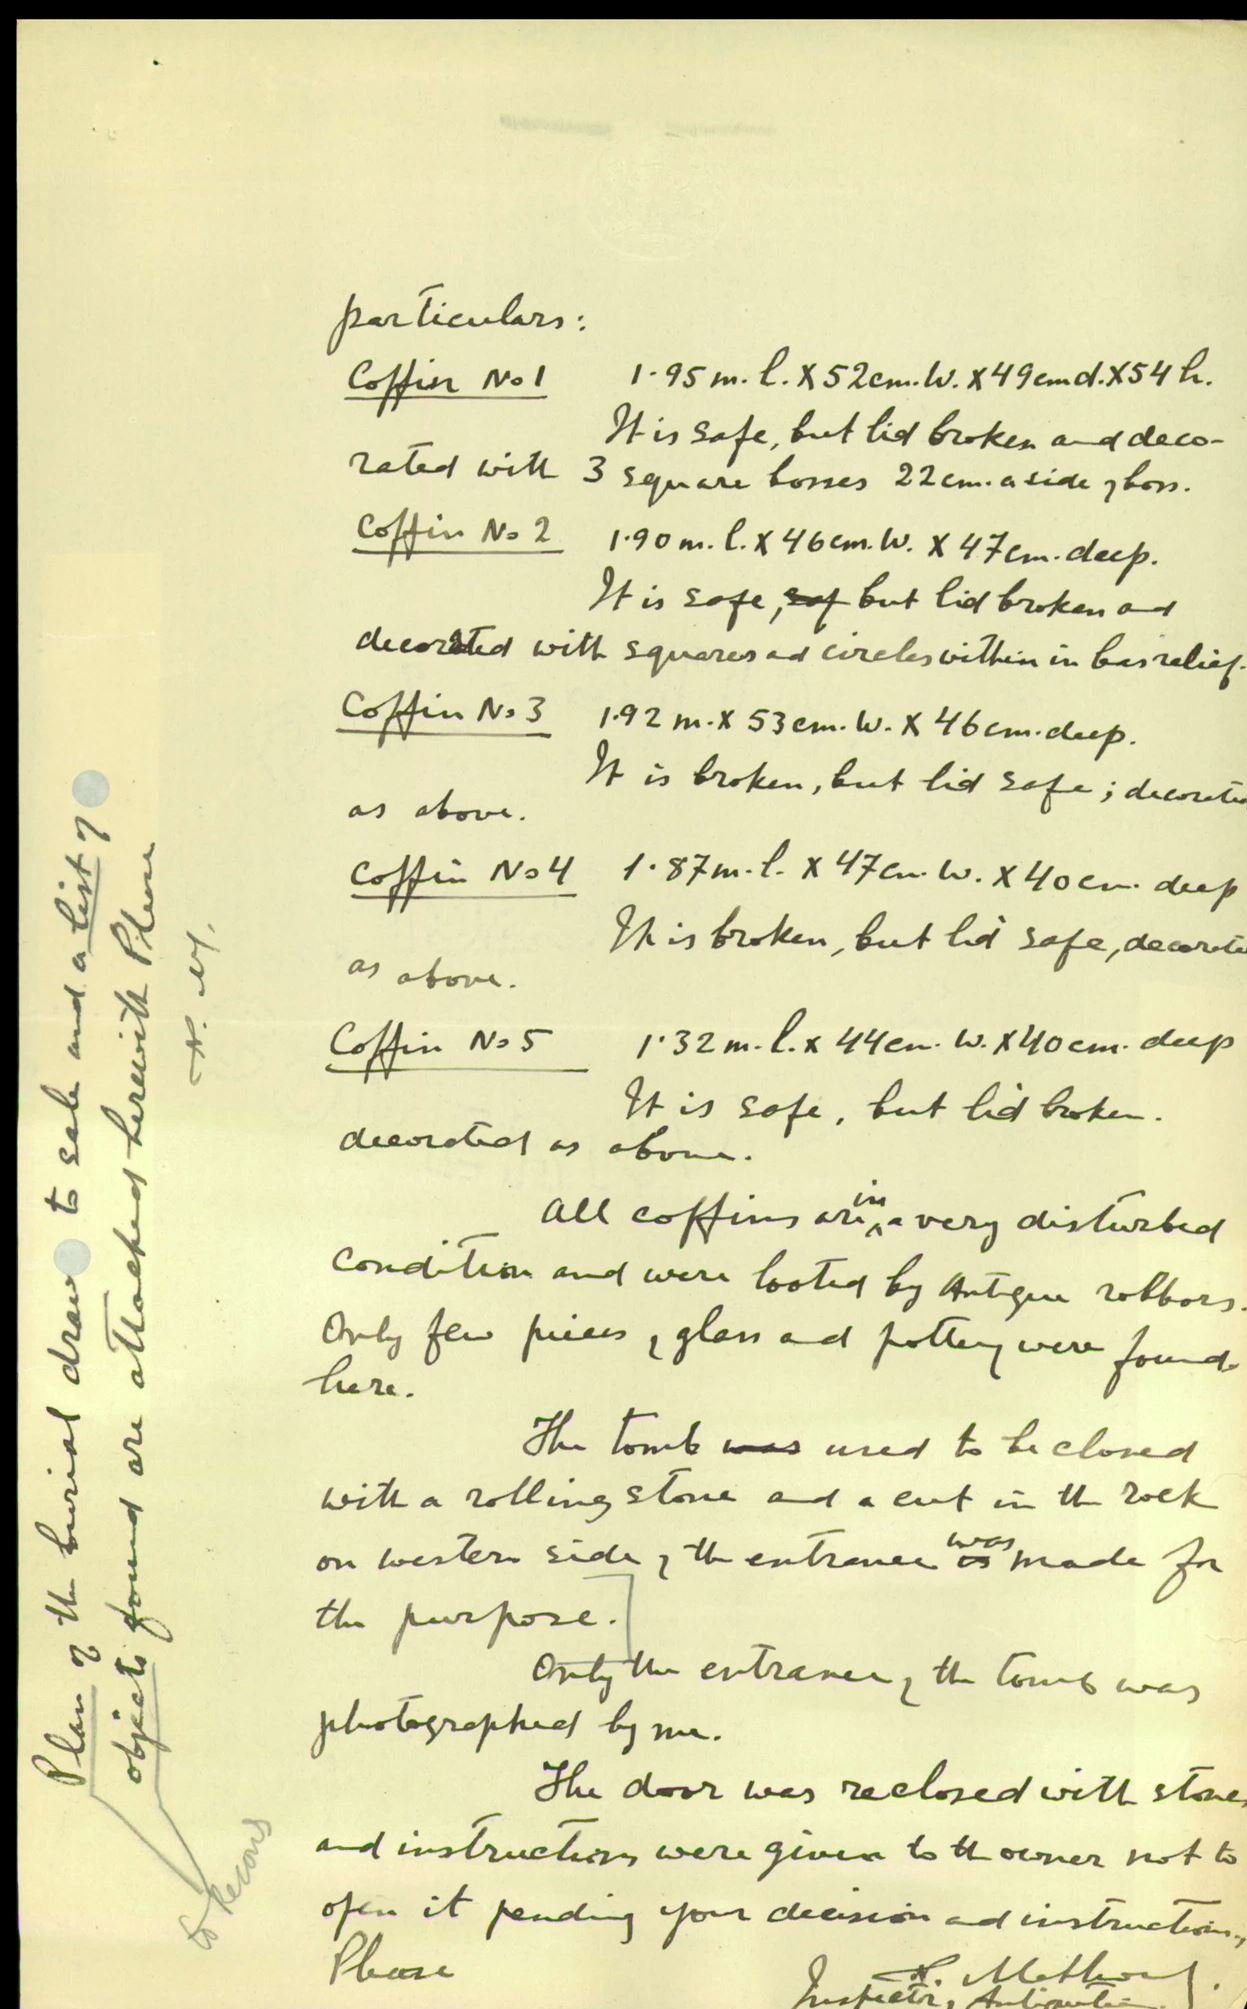 particulars:
Coffin No 1 1.95 m. l. X 52 cm. W. X 49 cm d. X 54 h.
It is safe, but lid broken and deco-
rated with 3 square bosses 22 cm. a side of boss.
Coffin No 2 1.90 m. l. X 46 cm. W. X 47 cm. deep.
It is safe, saf but lid broken and
decorated with squares ad circles within in bas relief.
Coffin No 3 1.92 m. X 53 cm. W. X 46 cm. deep.
It is broken, but lid safe; decorate
as above.
Coffin No 4 1.87 m. l. X 47 cm. W. X 40 cm. deep
It is broken, but lid safe, decorate
as above.
Coffin No 5 1.32 m. l. x 44 cm. W. X 40 cm. deep
It is safe, but lid broken.
decorated as above.
All coffins are in a very disturbed
condition and were looted by Antique robbors.
Only few pieces of glass and pottery were found
here.
The tomb was used to be closed
with a rolling stone and a cut in the rock
on western side of the entrance was made for
the purpose.
Only the entrance of the tomb was
photographed by me.
The door was reclosed with stones
and instructions were given to th owner not to
open it pending your decision ad instructions,
Please
Inspector of Antiquities
Plan of the burial drawn to sale and a list of
objects found are attached herewith Please
N. M.
to Records